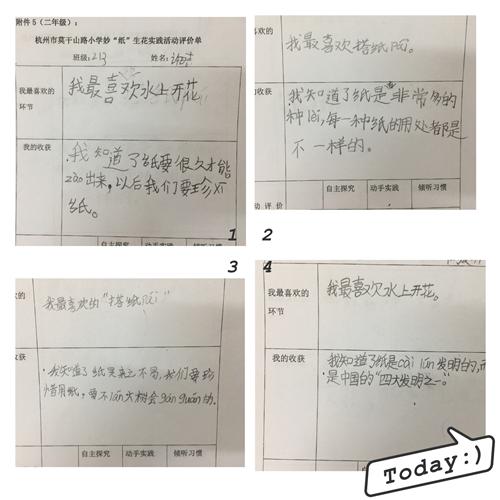 附件5（二年级）：
杭州市莫干山路小学妙“纸”生花实践活动评价单
班级：213 姓名：
我最喜欢的
环节
我最喜欢水上开花
我的收获
我知道了纸要很久才能
zào出来，以后我们要珍xī
纸。
自主探究 动手实践 倾听习惯
1
欢的
我最喜欢搭纸
收获
我知道了纸是非常多的
种lèi，每一种纸的用处都是
不一样的。
自主探究 动手实践 倾听习惯
动评价
2
3
欢的
我最喜欢的“搭纸
收获
我知道了纸来之不易，我们要珍
惜用纸，要不大树会
自主探究 动手实践 倾听习惯
4
我最喜欢的
环节
我最喜欢水上开花。
我的收获
我知道了纸是cài lún发明的，而
是中国的“四大发明之一”。
自主探究 动手实践 倾听习惯
Today:)